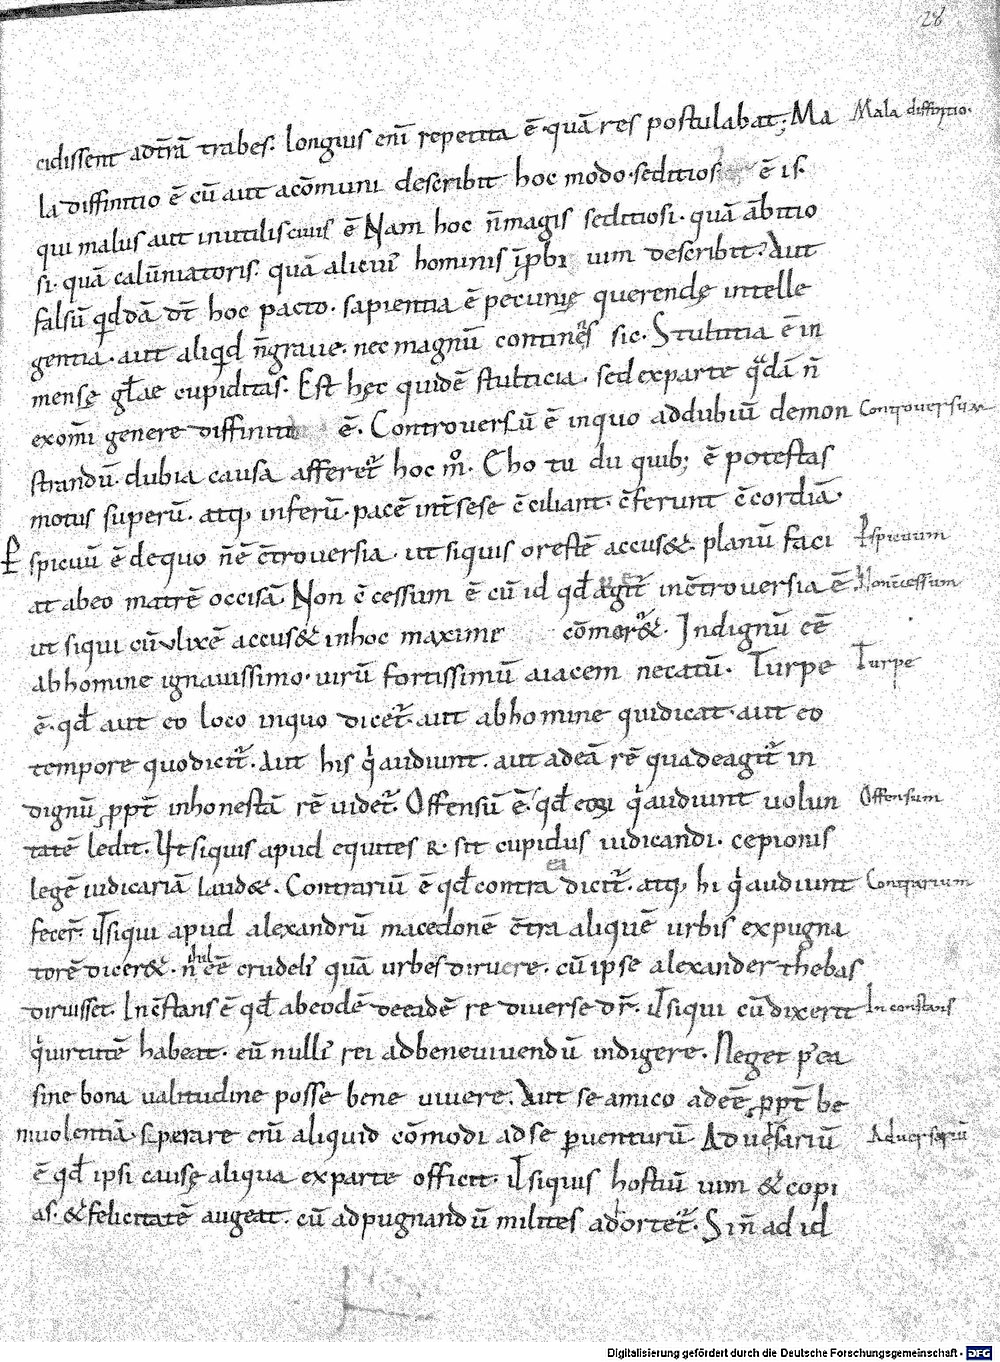 28
cidissent adt̄rā trabes. longius enī repetita ē quā res postulabat; Ma
Mala diffinitio.
la diffinitio ē cū aut acōmuni describit hoc modo. seditios ē is.
qui malus aut inutilis ciuis ē Nam hoc n̄ magis seditiosi. quā ābitio
si. quā calūniatoris. quā alicui᷑ hominis īpbi uim describit. Aut
falsū qddā dt̄ hoc pacto. sapientia ē pecunię querendę intelle
gentia. aut aliqd n̄ graue. nec magnū continens sic. Stultitia ē in
mensę gl̄ae cupiditas. Est hęc quidē stulticia. sed exparte qdā n̄
exom̄i genere diffinita ē. Controuersū ē inquo addubiū demon
Controuersum
strandū. dubia causa afferet᷑ hoc m̊. Eho tu du quib; ē potestas
motus superū. atq, inferū. pacē int̄sese c̄ciliant. c̄ferunt c̄cordiā.
ꝑspicuū ē dequo n̄ē c̄trouersia. ut siquis orestē accus&. planū faci
ꝑspicuum
at abeo matrē occisā Non c̄cessum ē cū id qđ agit᷑ inc̄trouersia ē.
Non c̄cessum
ut siqui cū vlixē accus& inhoc maxime cōmor&. Indignū eē
abhomine ignauissimo. uirū fortissimū aiacem necatū. Turpe
Turpe
ē. qđ aut eo loco inquo dicet᷑. aut abhomine quidicat. aut eo
tempore quodicit᷑. Aut his q̇ audiunt. aut adeā rē quadeagit᷑ in
dignū ꝓpt̄ inhonestā rē uidet᷑. Offensū ē. qđ eoꝝ q̇ audiunt uolun
Offensum
tatē ledit. Ut siquis apud equites R. sit cupidus iudicandi. cepionis
ea
legē iudicariā laud&. Contrariū ē qđ contra dicit᷑. atq, hi q̇ audiunt
Contrarium
fecer̄. Ut siqui apud alexandrū macedonē c̄tra aliquē urbis expugna
torē dicer&. nihil eē crudeli᷑ quā urbes diruere. cū ipse alexander thebas
diruisset. Inc̄stans ē qđ abeodē deeadē re diuerse dr̄. Ut siqui cū dixerit
Inconstans
q̇uirtutē habeat. eū nulli᷑ rei adbeneuiuendū indigere. Neget p᷑ea
sine bona ualitudine posse bene uiuere. Aut se amico adeē ꝓpt̄ be
niuolentiā. sperare enī aliquid cōmodi adse ꝑuenturū. Aduersariū
Aduersariū
ē qđ ipsi causę aliqua exparte officit. Ut siquis hostiū uim & copi
as. & felicitatē augeat. cū adpugnandū milites adortet᷑. Sin̄ ad id
Digitalisierung gefördert durch die Deutsche Forschungsgemeinschaft - DFG